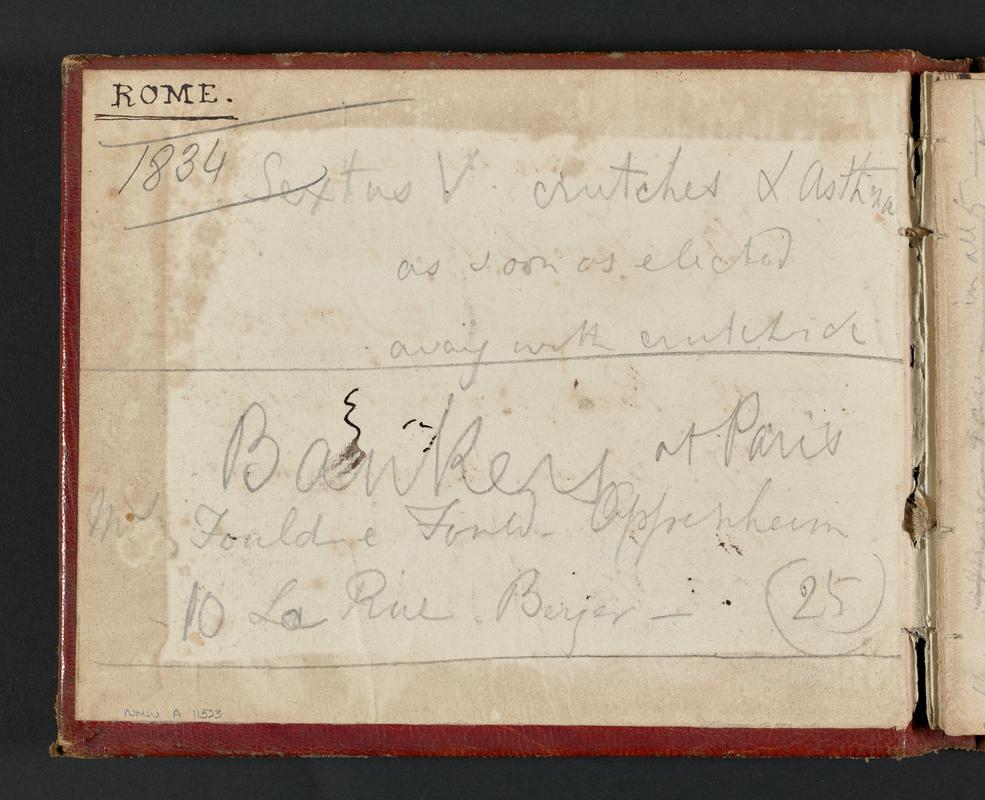 ROME.
1834
Sextus V crutches & Asthma
as soon as elected
away with crutches &c
Bankers at Paris
Mrs Foald e Fould - Oppenheim
10 La Rue Berger -
25
NMW A 11523